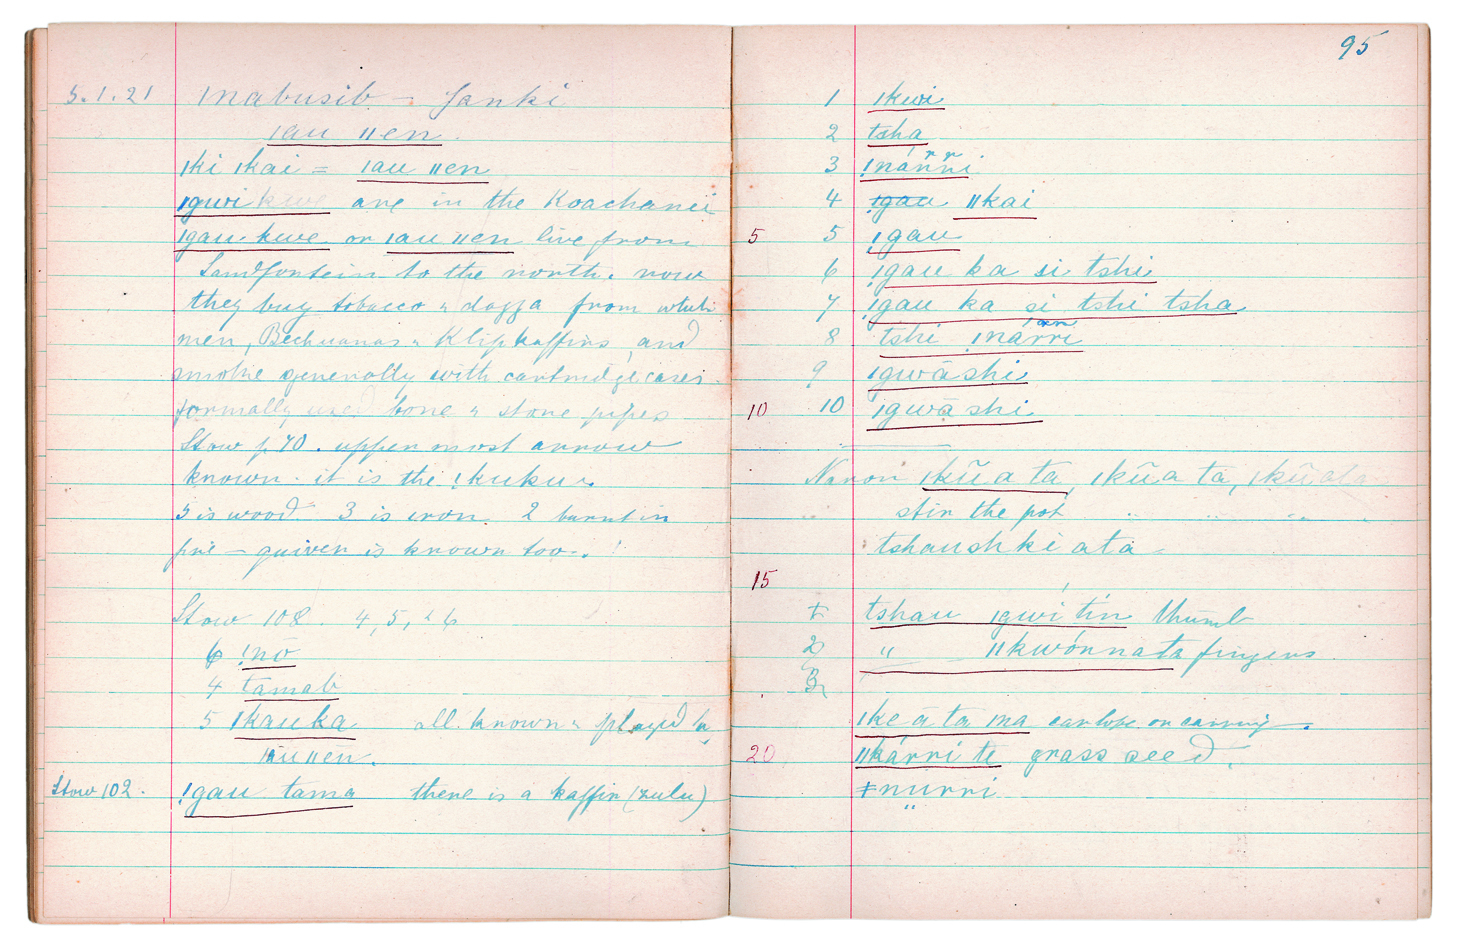 5.1.21 Mabusib - Janki
ǀau ǁen.
ǀki ǀkai = ǀau ǁen
ǀgwikwe are in the Koachanei
ǀgau-kwe or ǀau ǁen live from
Sandfontein to the north. now
they buy tobacco & dagga from white
men, Bechuanas & Klipkaffirs, and
smoke generally with cartridge cases.
formally used bone & stone pipes
Stow p 70. upper most arrow
known. it is the ǃkuku
5 is wood 3 is iron 2 burnt in
fire - quiver is known too.
Stow 108. 4, 5, & 6
6 ǃnō
4 tamab
5 ǀkauka all known & played by
ǀauǁen.
Stow 102. ǃgau tama there is a kaffir (zulu)
95
1 ǀkwi
2 tsha
3 ǃnárri
4 ǀgau ǁkai
5 5 ǃgau
6 ǃgau ka si tshi
7 ǃgau ka si tshi tsha
8 tshi ǃnárri
9 ǀgwāshi
10 10 ǀgwāshi
Naron ǀkũa ta, ǀkũa ta, ǀkũata
" stir the pot " " " "
tshaushki ata
15
tshau ǀgwi tín thumb
2 " ǁkwónnata fingers
3
ǀkeāta ma
20 ǁkárri te grass seed.
ǂnurri "